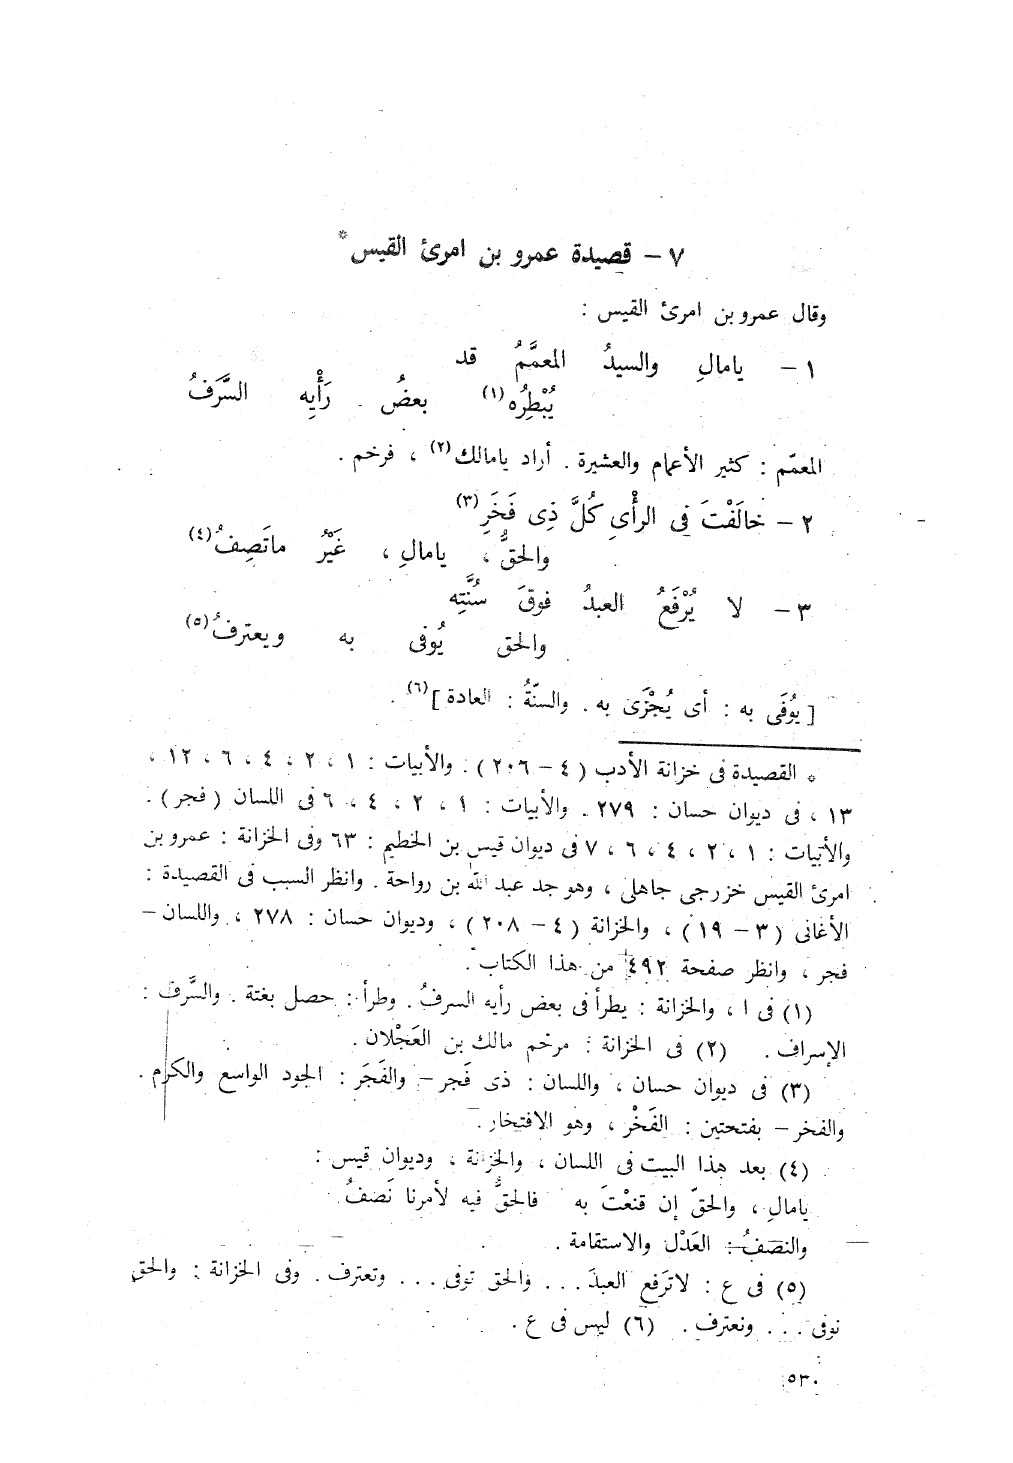 ٧ – قصيدة عمرو بن امرئ القيس*
وقال عمرو بن امرئ القيس :
١ – يامالِ والسيدُ المعمَّمُ قد
يُبْطِرُه(١) بعضُ رَأْيِه السَّرَفُ
المعمّم : كثير الأعمام والعشيرة . أراد يامالك(٢) ، فرخم .
٢ – خالَفْتَ فى الرأْىِ كُلَّ ذِى فَخَرِ(٣)
والحقُّ ، يامالِ ، غَيْرُ ماتَصِفُ(٤)
٣ – لا يُرْفَعُ العبدُ فوقَ سُنَّتِه
والحق يُوفى به ويعترفُ(٥)
[ يُوفَى به : أى يُجْزَى به . والسنّةُ : العادة ](٦) .
* القصيدة فى خزانة الأدب ( ٤ – ٢٠٦ ) . والأبيات : ١ ، ٢ ، ٤ ، ٦ ، ١٢ ،
١٣ ، فى ديوان حسان : ٢٧٩ . والأبيات : ١ ، ٢ ، ٤ ، ٦ فى اللسان ( فجر ) .
والأبيات : ١ ، ٢ ، ٤ ، ٦ ، ٧ فى ديوان قيس بن الخطيم : ٦٣ وفى الخزانة : عمرو بن
امرئ القيس خزرجى جاهلى ، وهو جد عبد الله بن رواحة . وانظر السبب فى القصيدة :
الأغانى ( ٣ – ١٩ ) ، والخزانة ( ٤ – ٢٠٨ ) ، وديوان حسان : ٢٧٨ ، واللسان –
فجر ، وانظر صفحة ٤٩٢ من هذا الكتاب .
(١) فى ا ، والخزانة : يطرأ فى بعض رأيه السرفُ . وطرأ : حصل بغتة . والسَّرف :
الإسراف . (٢) فى الخزانة : مرخم مالك بن العَجْلان .
(٣) فى ديوان حسان ، واللسان : ذى فَجر – والفَجَر : الجود الواسع والكرم .
والفخر – بفتحتين : الفَخْر ، وهو الافتخار .
(٤) بعد هذا البيت فى اللسان ، والخزانة ، وديوان قيس :
يامالِ ، والحقّ إن قنعْتَ به فالحقُّ فيه لأمرنا نَصَفُ
والنصَفُ : العَدْل والاستقامة .
(٥) فى ع : لاترَفع العبدَ ... والحق توفى ... وتعترف . وفى الخزانة : والحق
نوفى ... ونعترف . (٦) ليس فى ع .
٥٣٠